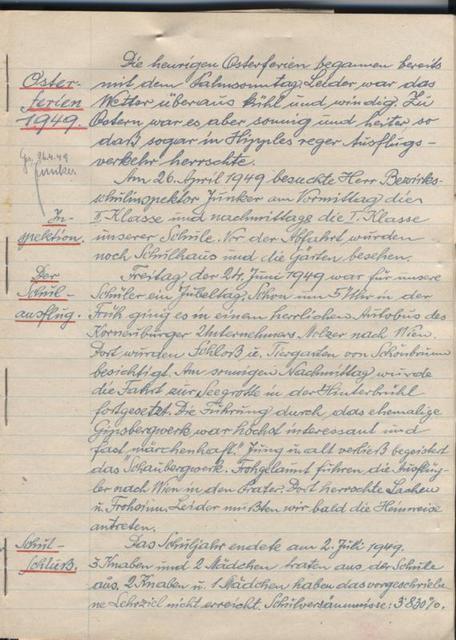 Die heurigen Osterferien begannen bereits
Oster-
ferien
1949.
mit dem Palmsonntag. Leider war das
Wetter überaus kühl und windig. Zu
Ostern war es aber sonnig und heiter so
daß sogar in Hipples reger Ausflugs-
verkehr herrschte.
Ges. 26.4.49
Junker
Am 26. April 1949 besuchte Herr Bezirks-
schulinspektor Junker am Vormittag die
In-
spektion.
II. Klasse und nachmittags die I. Klasse
unserer Schule. Vor der Abfahrt wurden
noch Schulhaus und die Gärten besehen.
Der
Schul-
ausflug.
Freitag der 24. Juni 1949 war für unsere
Schüler ein Jubeltag. Schon um 5 Uhr in der
Früh ging es in einem herrlichen Autobus des
Korneuburger Unternehmers Melzer nach Wien.
Dort wurden Schloß u. Tiergarten von Schönbrunn
besichtigt. Am sonnigen Nachmittag wurde
die Fahrt zur Seegrotte in der Hinterbrühl
fortgesetzt. Die Führung durch das ehemalige
Gipsbergwerk war höchst interessant und
fast "märchenhaft". Jung u. alt verließ begeistert
das "Schaubergwerk. Frohgelaunt fuhren die Ausflüg-
ler nach Wien in den Prater. Dort herrschte Lachen
u. Frohsinn. Leider mußten wir bald die Heimreise
antreten.
Schul-
schluß.
Das Schuljahr endete am 2. Juli 1949.
3 Knaben und 2 Mädchen traten aus der Schule
aus. 2 Knaben u. 1 Mädchen haben das vorgeschriebe-
ne Lehrziel nicht erreicht. Schulversäumnisse: 3'830%.